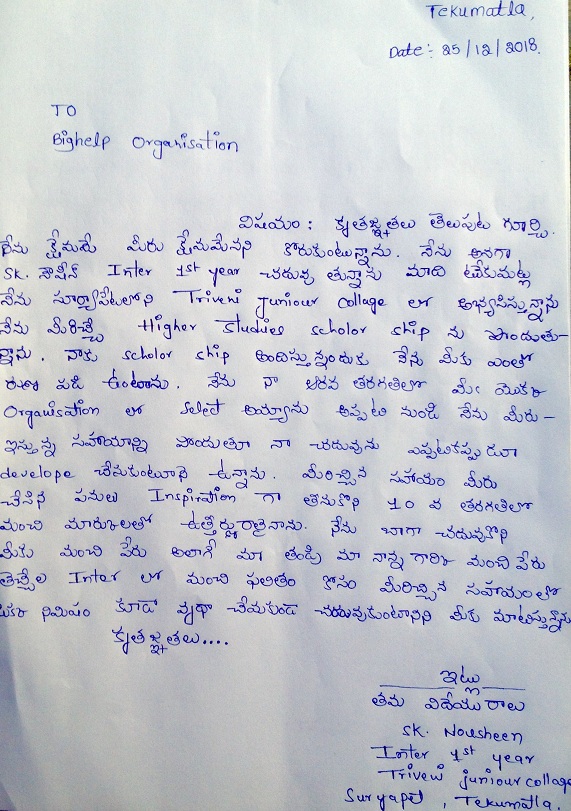 Tekumatla,
Date:- 25/12/2018.
TO
Bighelp Organisation
విషయం : కృతజ్ఞతలు తెలుపుట గూర్చి.
నేను క్షేమమే మీరు క్షేమమేనని కోరుకుంటున్నాను. నేను అనగా
SK. నౌషీన్ Inter 1st year చదువు తున్నాను మాది టేకుమట్ల
నేను సూర్యాపేటలోని Triveni juniour collage లో అభ్యసిస్తున్నాను
నేను మీరిచ్చే Higher studies scholor ship ను పొందుతు-
న్నాను. నాకు scholor ship అందిస్తున్నందుకు నేను మీకు ఎంతో
రుణ పడి ఉంటాను. నేను నా తరగతిలో మీ యొక్క
Organisation లో select అయ్యాను అప్పటి నుండి నేను మీరు-
ఇస్తున్న సహాయాన్ని పొందుతూ నా చదువును ఎప్పటికప్పుడూ
develope చేసుకుంటూనె ఉన్నాను. మీరిచ్చిన సహాయం మీరు
చేసిన పనులు Inspiration గా తీసుకొని 10 వ తరగతిలో
మంచి మార్కులతో ఉత్తీర్ణురాలైనాను. నేను బాగా చదువుకొని
మీకు మంచి పేరు అలాగే మా తండ్రి మా నాన్న గారికి మంచి పేరు
తెచ్చేల Inter లో మంచి ఫలితం కోసం మీరిచ్చిన సహాయంలో
ఒక్క నిమిషం కూడా వృథా చేయకుండ చదువుకుంటానని మీకు మాటిస్తున్నాను
కృతజ్ఞతలు....
ఇట్లు
తమ విదేయురాలు
SK. Nousheen
Inter 1st year
Triveni juniour collage
Suryapet, Tekumatla.